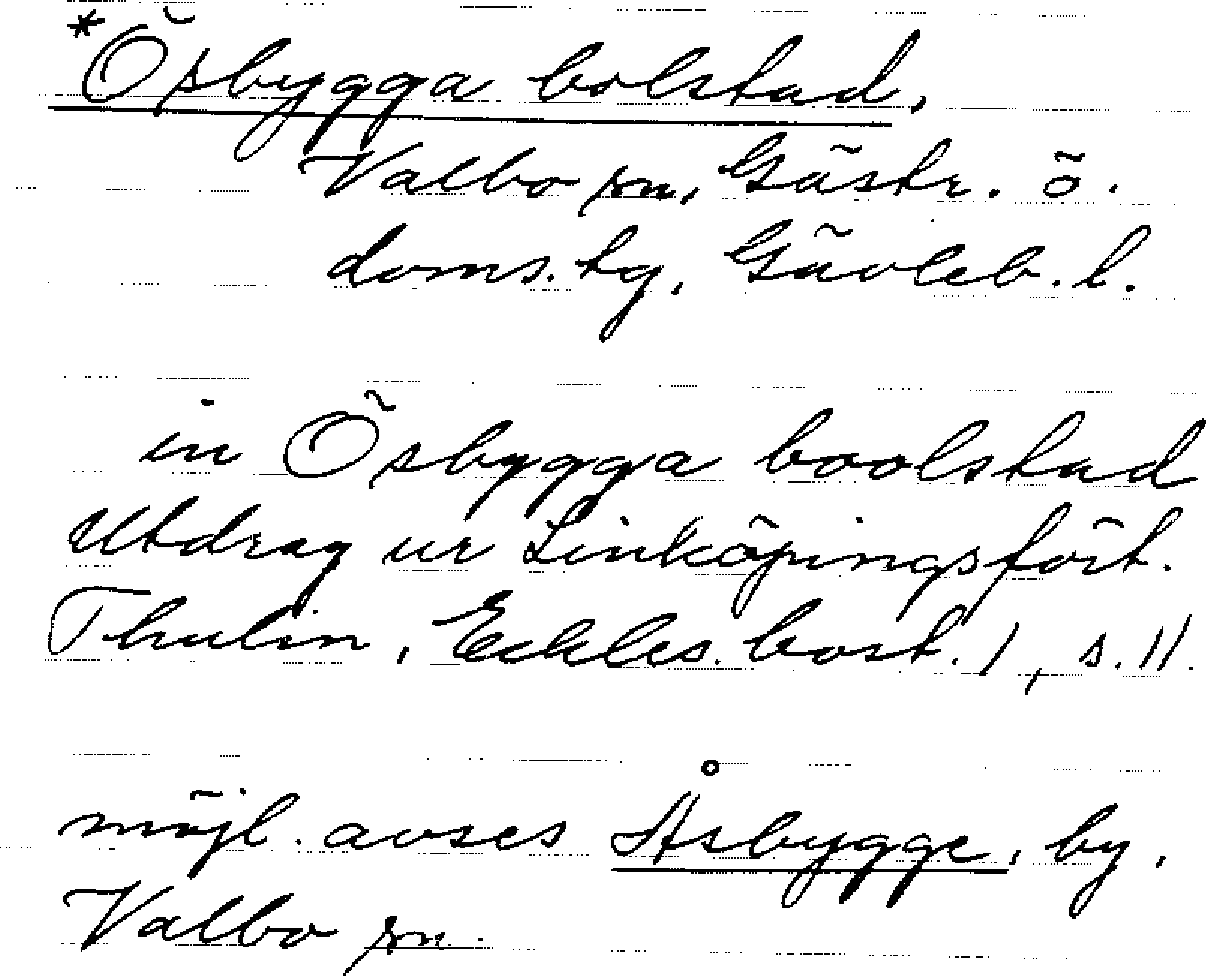 *Ösbygga bolstad,
Valbo sn, Gästr. ö.
doms.tg, Gävleb. l.
in Ösbygga boolstad
Utdrag ur Linköpingsfört.
Thulin, Eckles. bost. 1, s. 11.
möjl. avses Åsbygge, by,
Valbo sn.